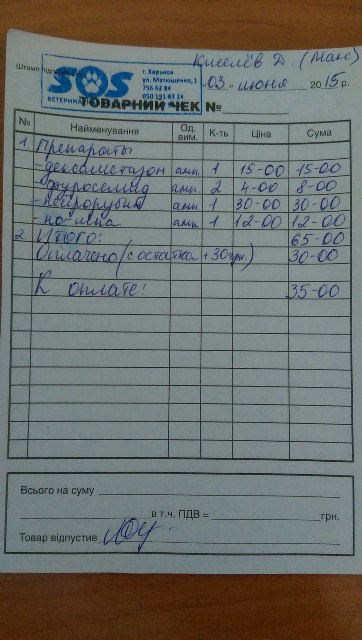 Киселёв Д. (Макс)
Штамп
SOS
ВЕТЕРИНАР
г. Харьков
ул. Матюшенко, 1
756 62 84
050 191 03 24
03 - июня 2015 р.
ТОВАРНИЙ ЧЕК №
№ Найменування Од. вим. К-ть Ціна Сума
1. Препараты
- дексаметазон амп. 1 15-00 15-00
- фуросемид амп. 2 4-00 8-00
- нейрорубин амп. 1 30-00 30-00
- но-шпа амп. 1 12-00 12-00
2. Итого: 65-00
Оплачено (с остатка +30грн.) 30-00
К оплате! 35-00
Всього на суму
в т.ч. ПДВ = грн.
Товар відпустив